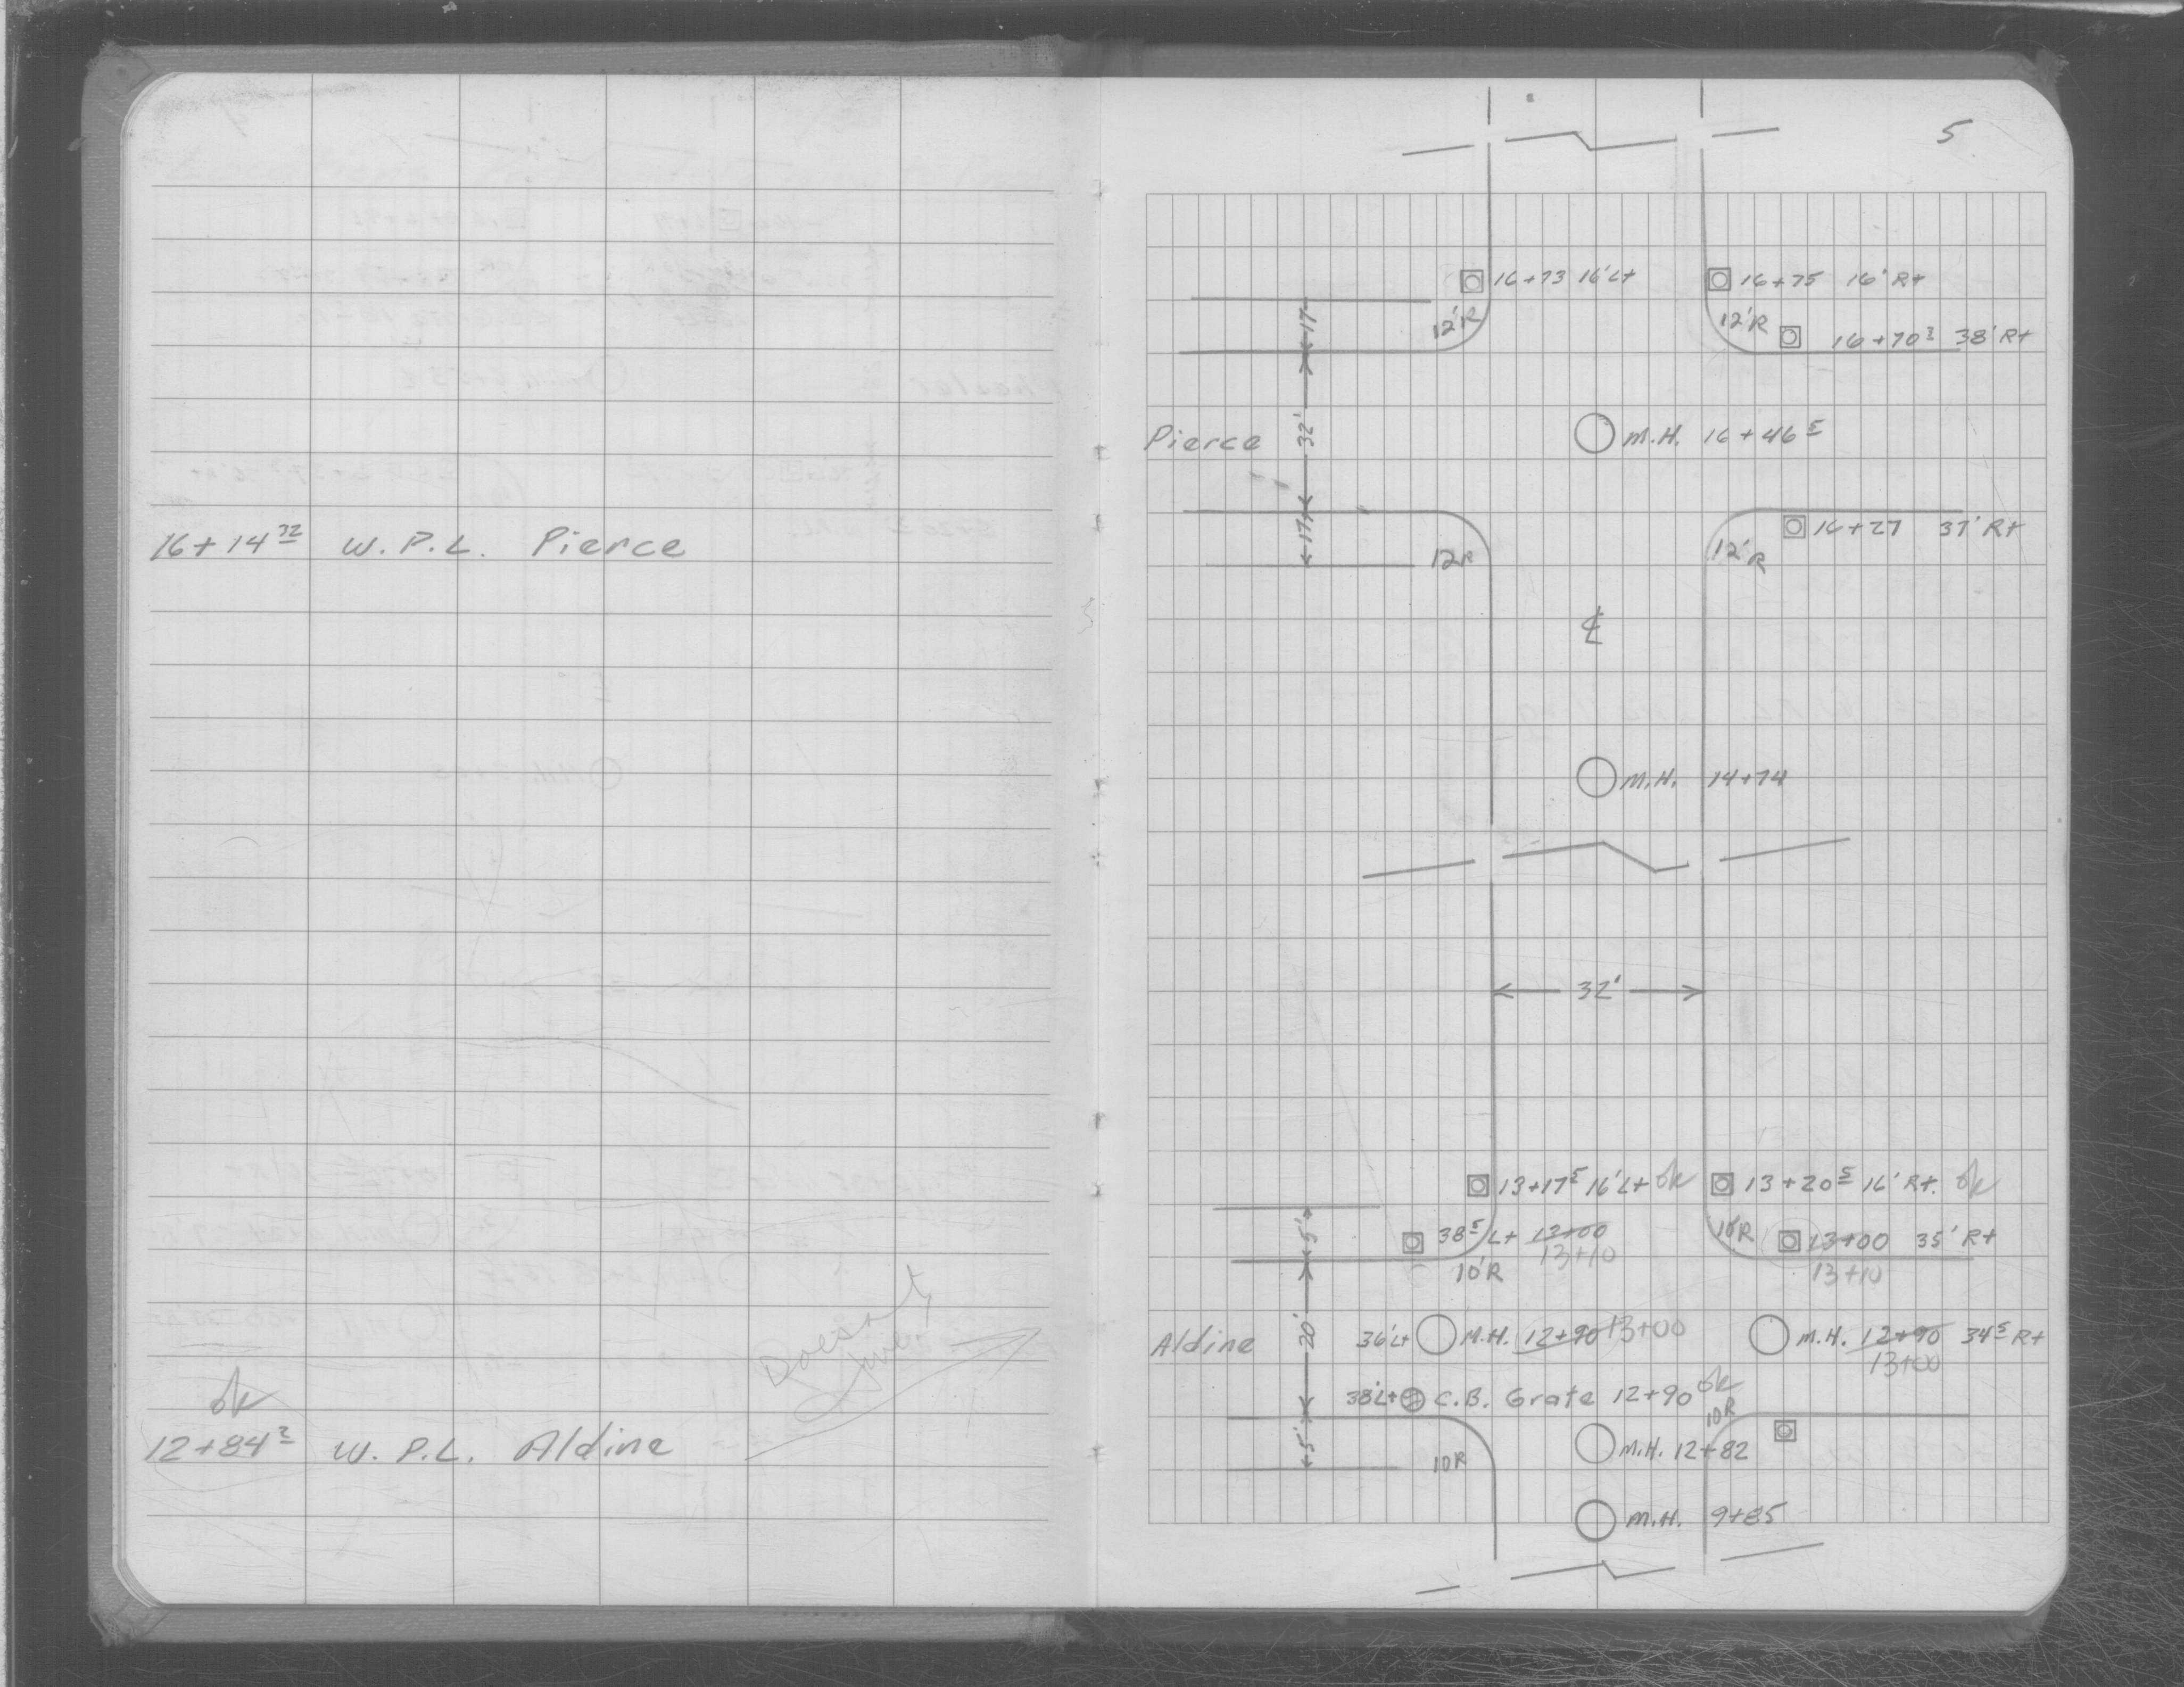 16+14 32 W.P.L. Pierce
Doesnt
ok
12+84 2 W.P.L. Aldine
5
16+73 16' Lt
16+75 16' Rt
17'
12'R
12'R
16+70 3 38' Rt
Pierce
32'
M.H. 16+46 5
17'
16+27 37' Rt
12R
12'R
℄
M.H. 14+74
32'
13+17 5 16' Lt ok
13+20 5 16' Rt. ok
5'
38 5 Lt 13+00
13+10
10'R
10'R
13+00 35' Rt
13+10
Aldine
20'
36' Lt M.H. 12+90 13+00
M.H. 12+90 34 5 Rt
13+00
38' Lt C.B. Grate 12+90 ok
10R
M.H. 12+82
5'
10R
M.H. 9+85